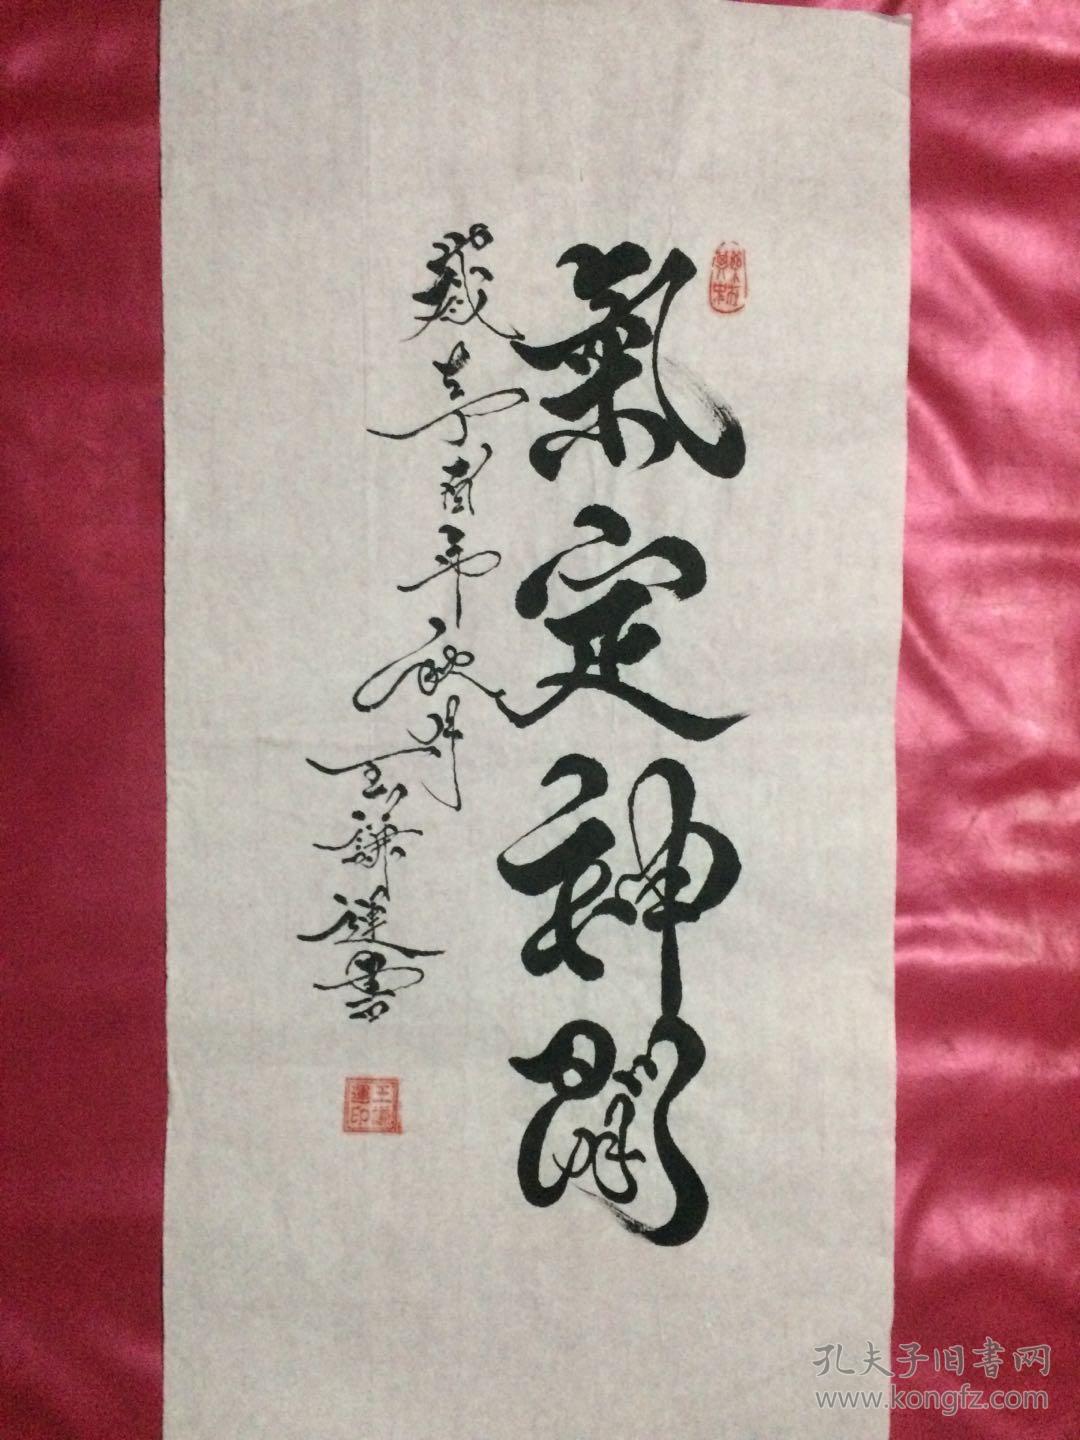 氣定神閒
歲在丁酉年秋月
王謙建書
孔夫子旧書网
www.kongfz.com